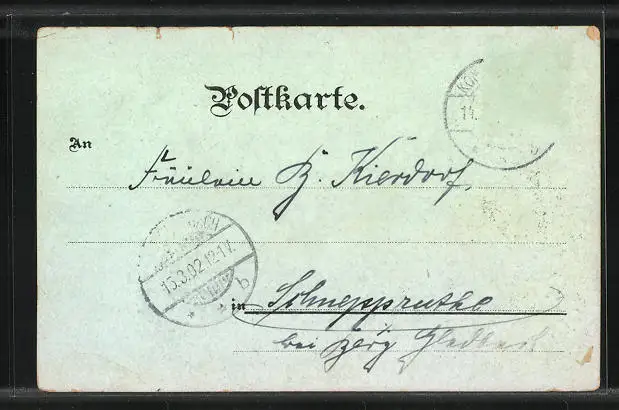 Postkarte.
KÖ
11.
An
Fräulein B. Kierdorf,
15.3.02.12-1V.
b
in Schnepprüthe
bei Berg Gladbach